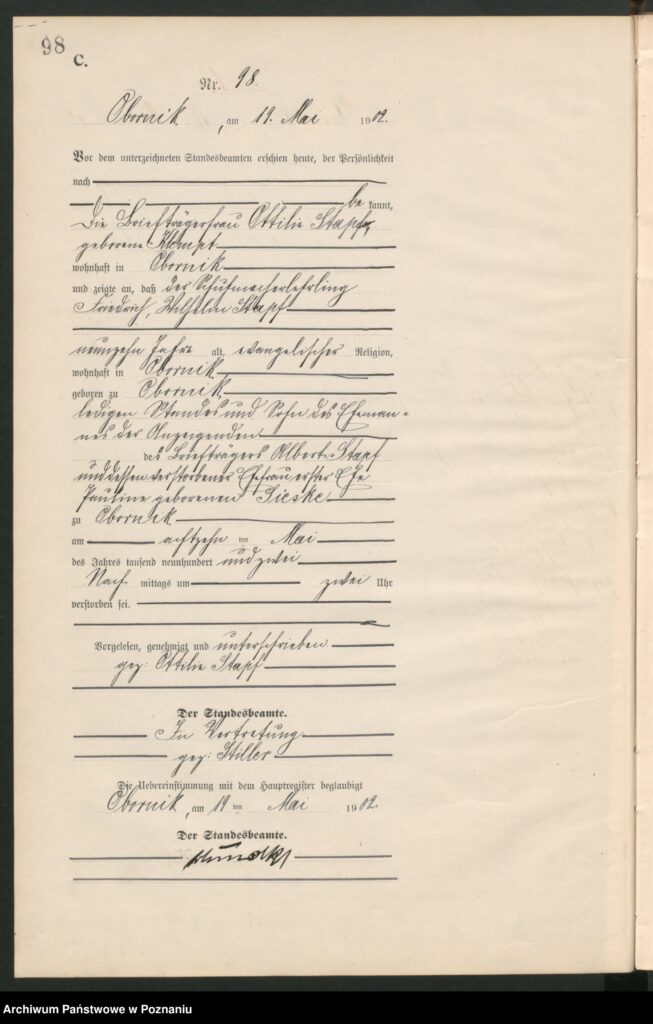 98
C.
Nr. 98.
Obornik, am 19. Mai 1902.
Vor dem unterzeichneten Standesbeamten erschien heute, der Persönlichkeit
nach
be kannt,
die Briefträgerfrau Ottilie Stapf,
geborene
wohnhaft in Obornik
und zeigte an, daß der Schuhmacherlehrling
Friedrich, Wilhelm Stapf
neunzehn Jahre alt, evangelischer Religion,
wohnhaft in Obornik
geboren zu Obornik
ledigen Standes und Sohn des Eheman-
nes der Anzeigenden
des Briefträgers Albert Stapf
und dessen verstorbener Ehefrau erster Ehe
Pauline geborenen Gieske
zu Obornik
am achtzehn ten Mai
des Jahres tausend neunhundert und zwei
Nach mittags um zwei Uhr
verstorben sei.
Vorgelesen, genehmigt und unterschrieben
gez: Ottilie Stapf
Der Standesbeamte.
In Vertretung
gez: Stiller
Die Uebereinstimmung mit dem Hauptregister beglaubigt
Obornik, am 19 ten Mai 1902.
Der Standesbeamte.
Archiwum Państwowe w Poznaniu